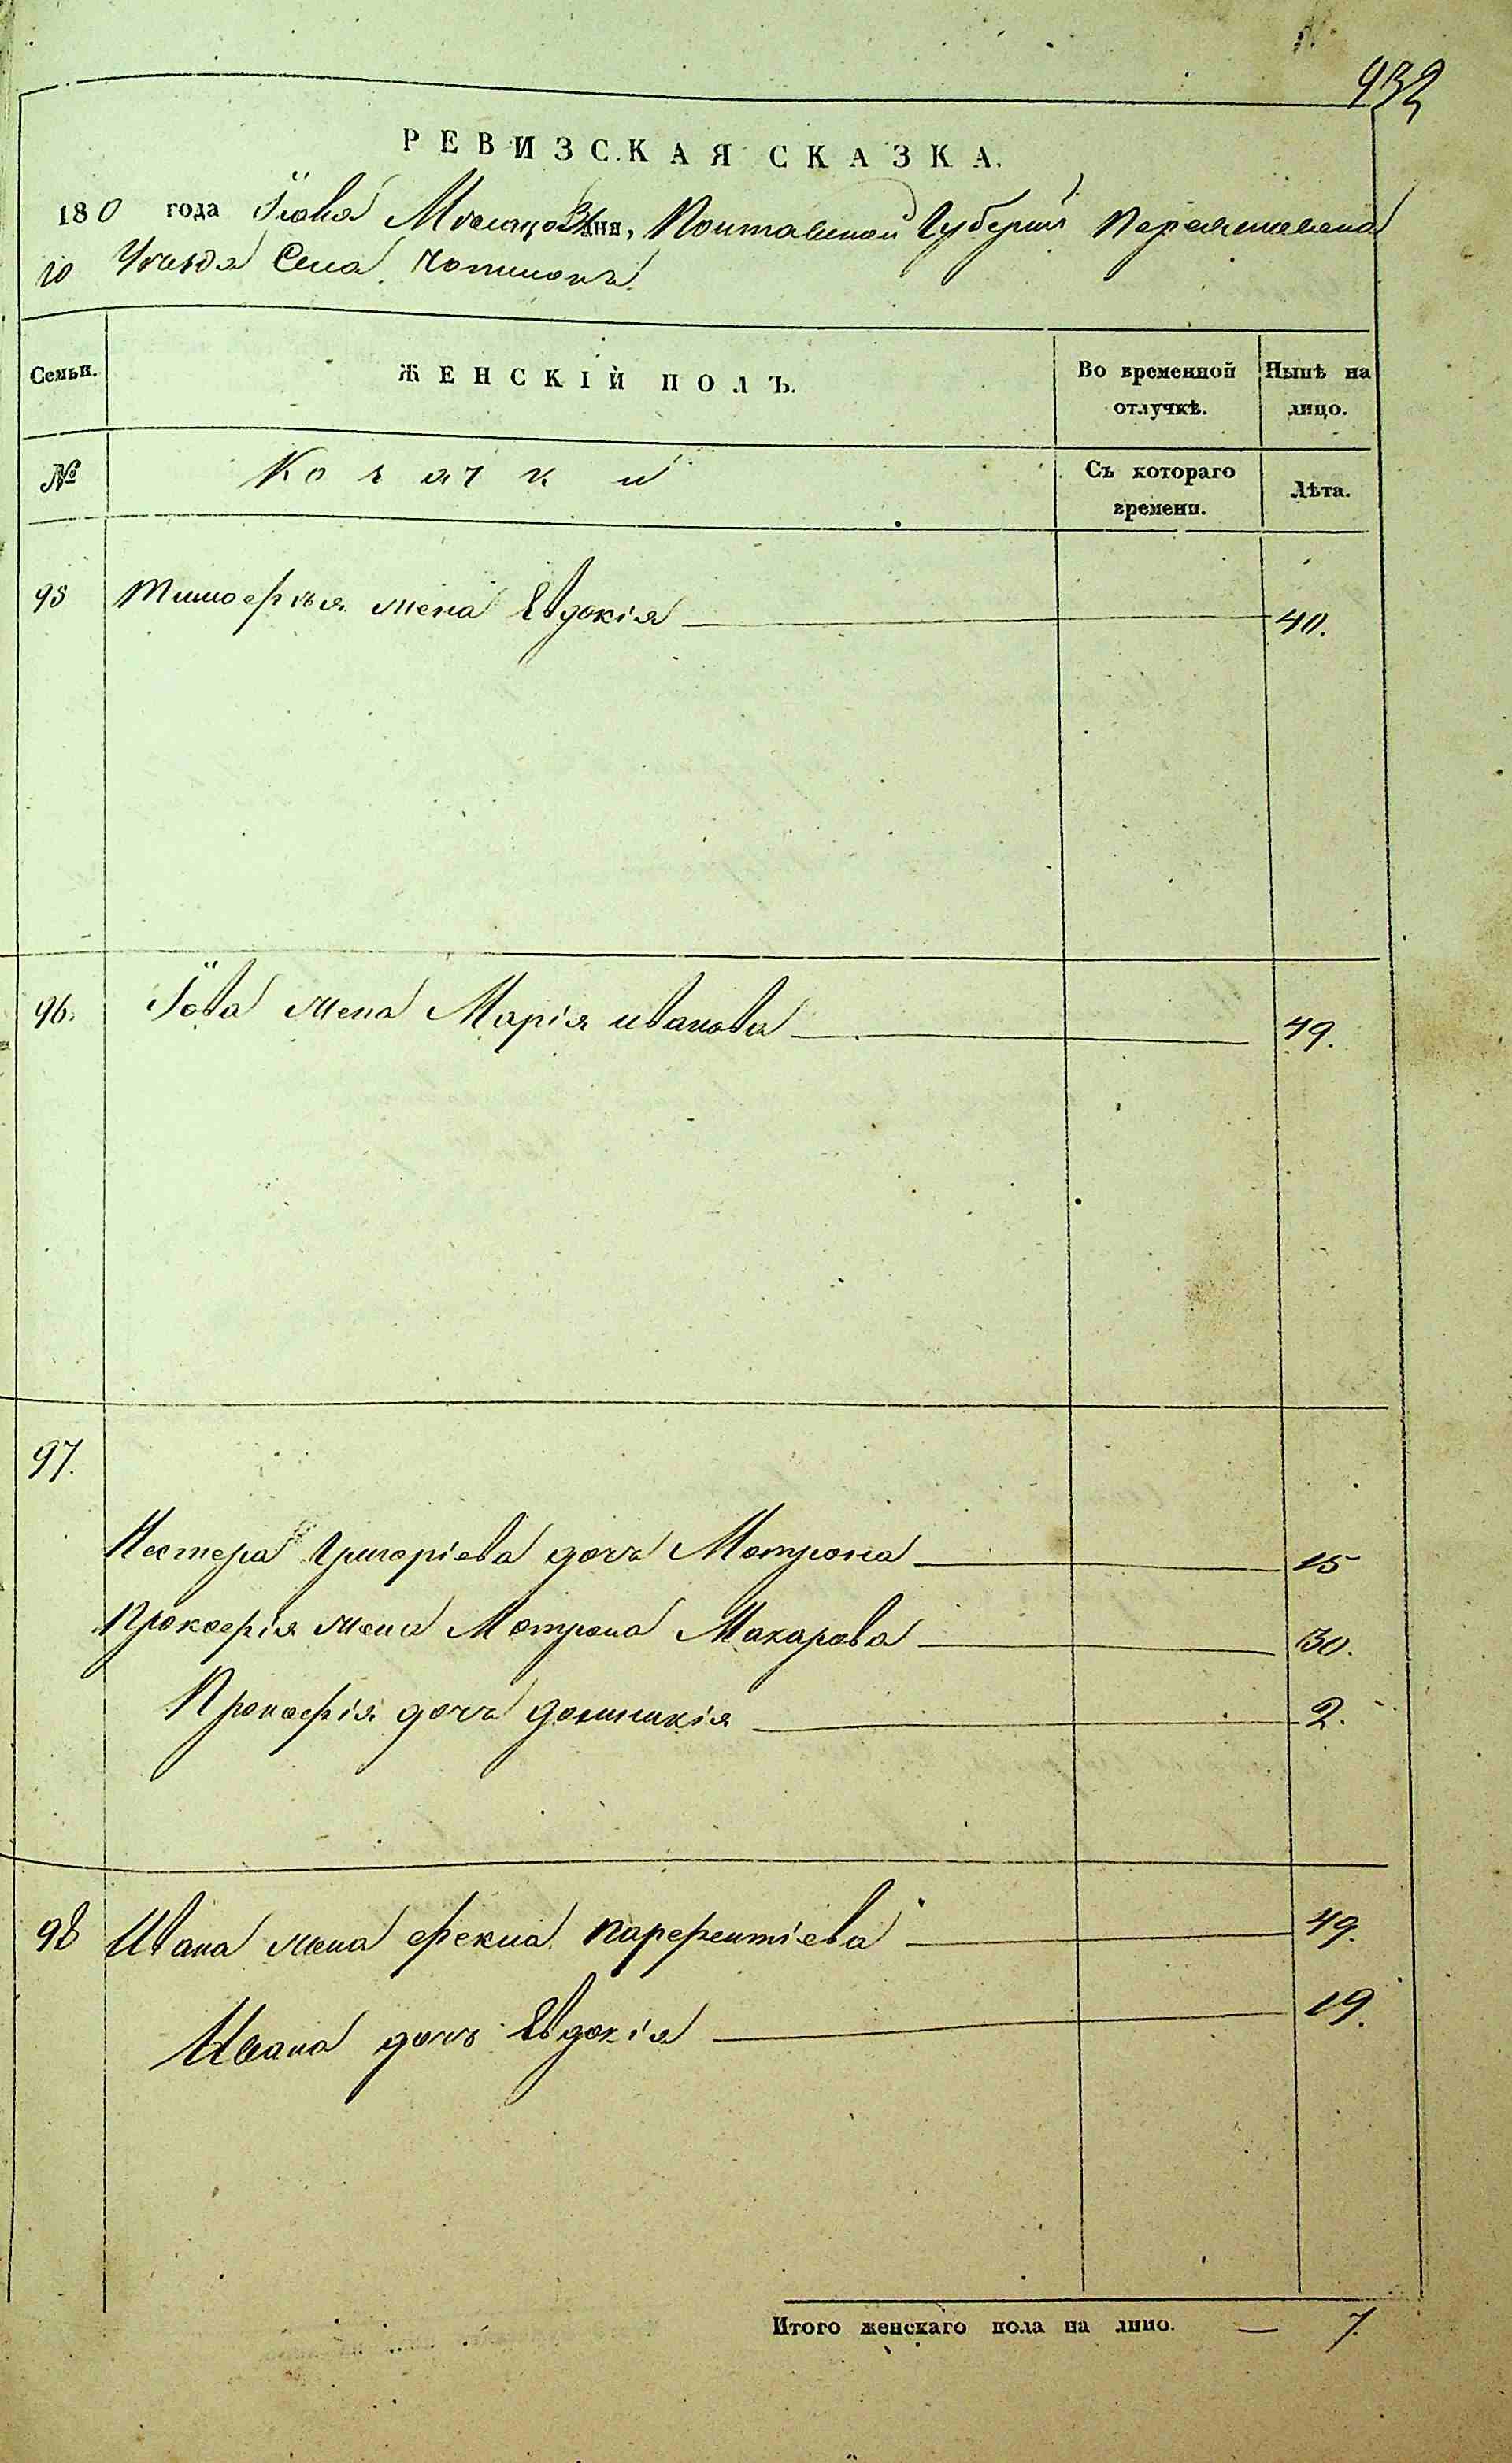 932
РЕВИЗСКАЯ СКАЗКА.
180 года Мѣсяца дня, Полтавской Губернии Переяславска
го Уезда Села
Семьи. ЖЕНСКІЙ ПОЛЪ. Во временной отлучкѣ. Нынѣ на лицо.
№ Козачки Съ котораго времени. Лѣта.
95 Тимоефѣя жена Евдокія 40.
96. Іова жена Марія иванова 49.
97.
Нестера Григоріева дочь Мотрона 15
Прокоефія жена Мотрона Макарова 30.
Прокоефія дочь домникія 2.
98 Ивана жена фекла парфентіева 49.
Ивана дочь Евдокія 19.
Итого женскаго пола на лицо. — 7.